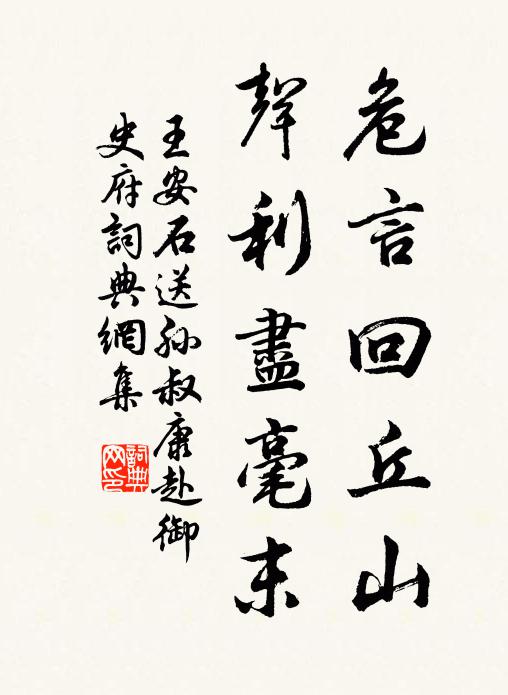 危言回丘山
聲利盡毫末
王安石送孫叔康赴御
史府詞典網集
詞典
网印